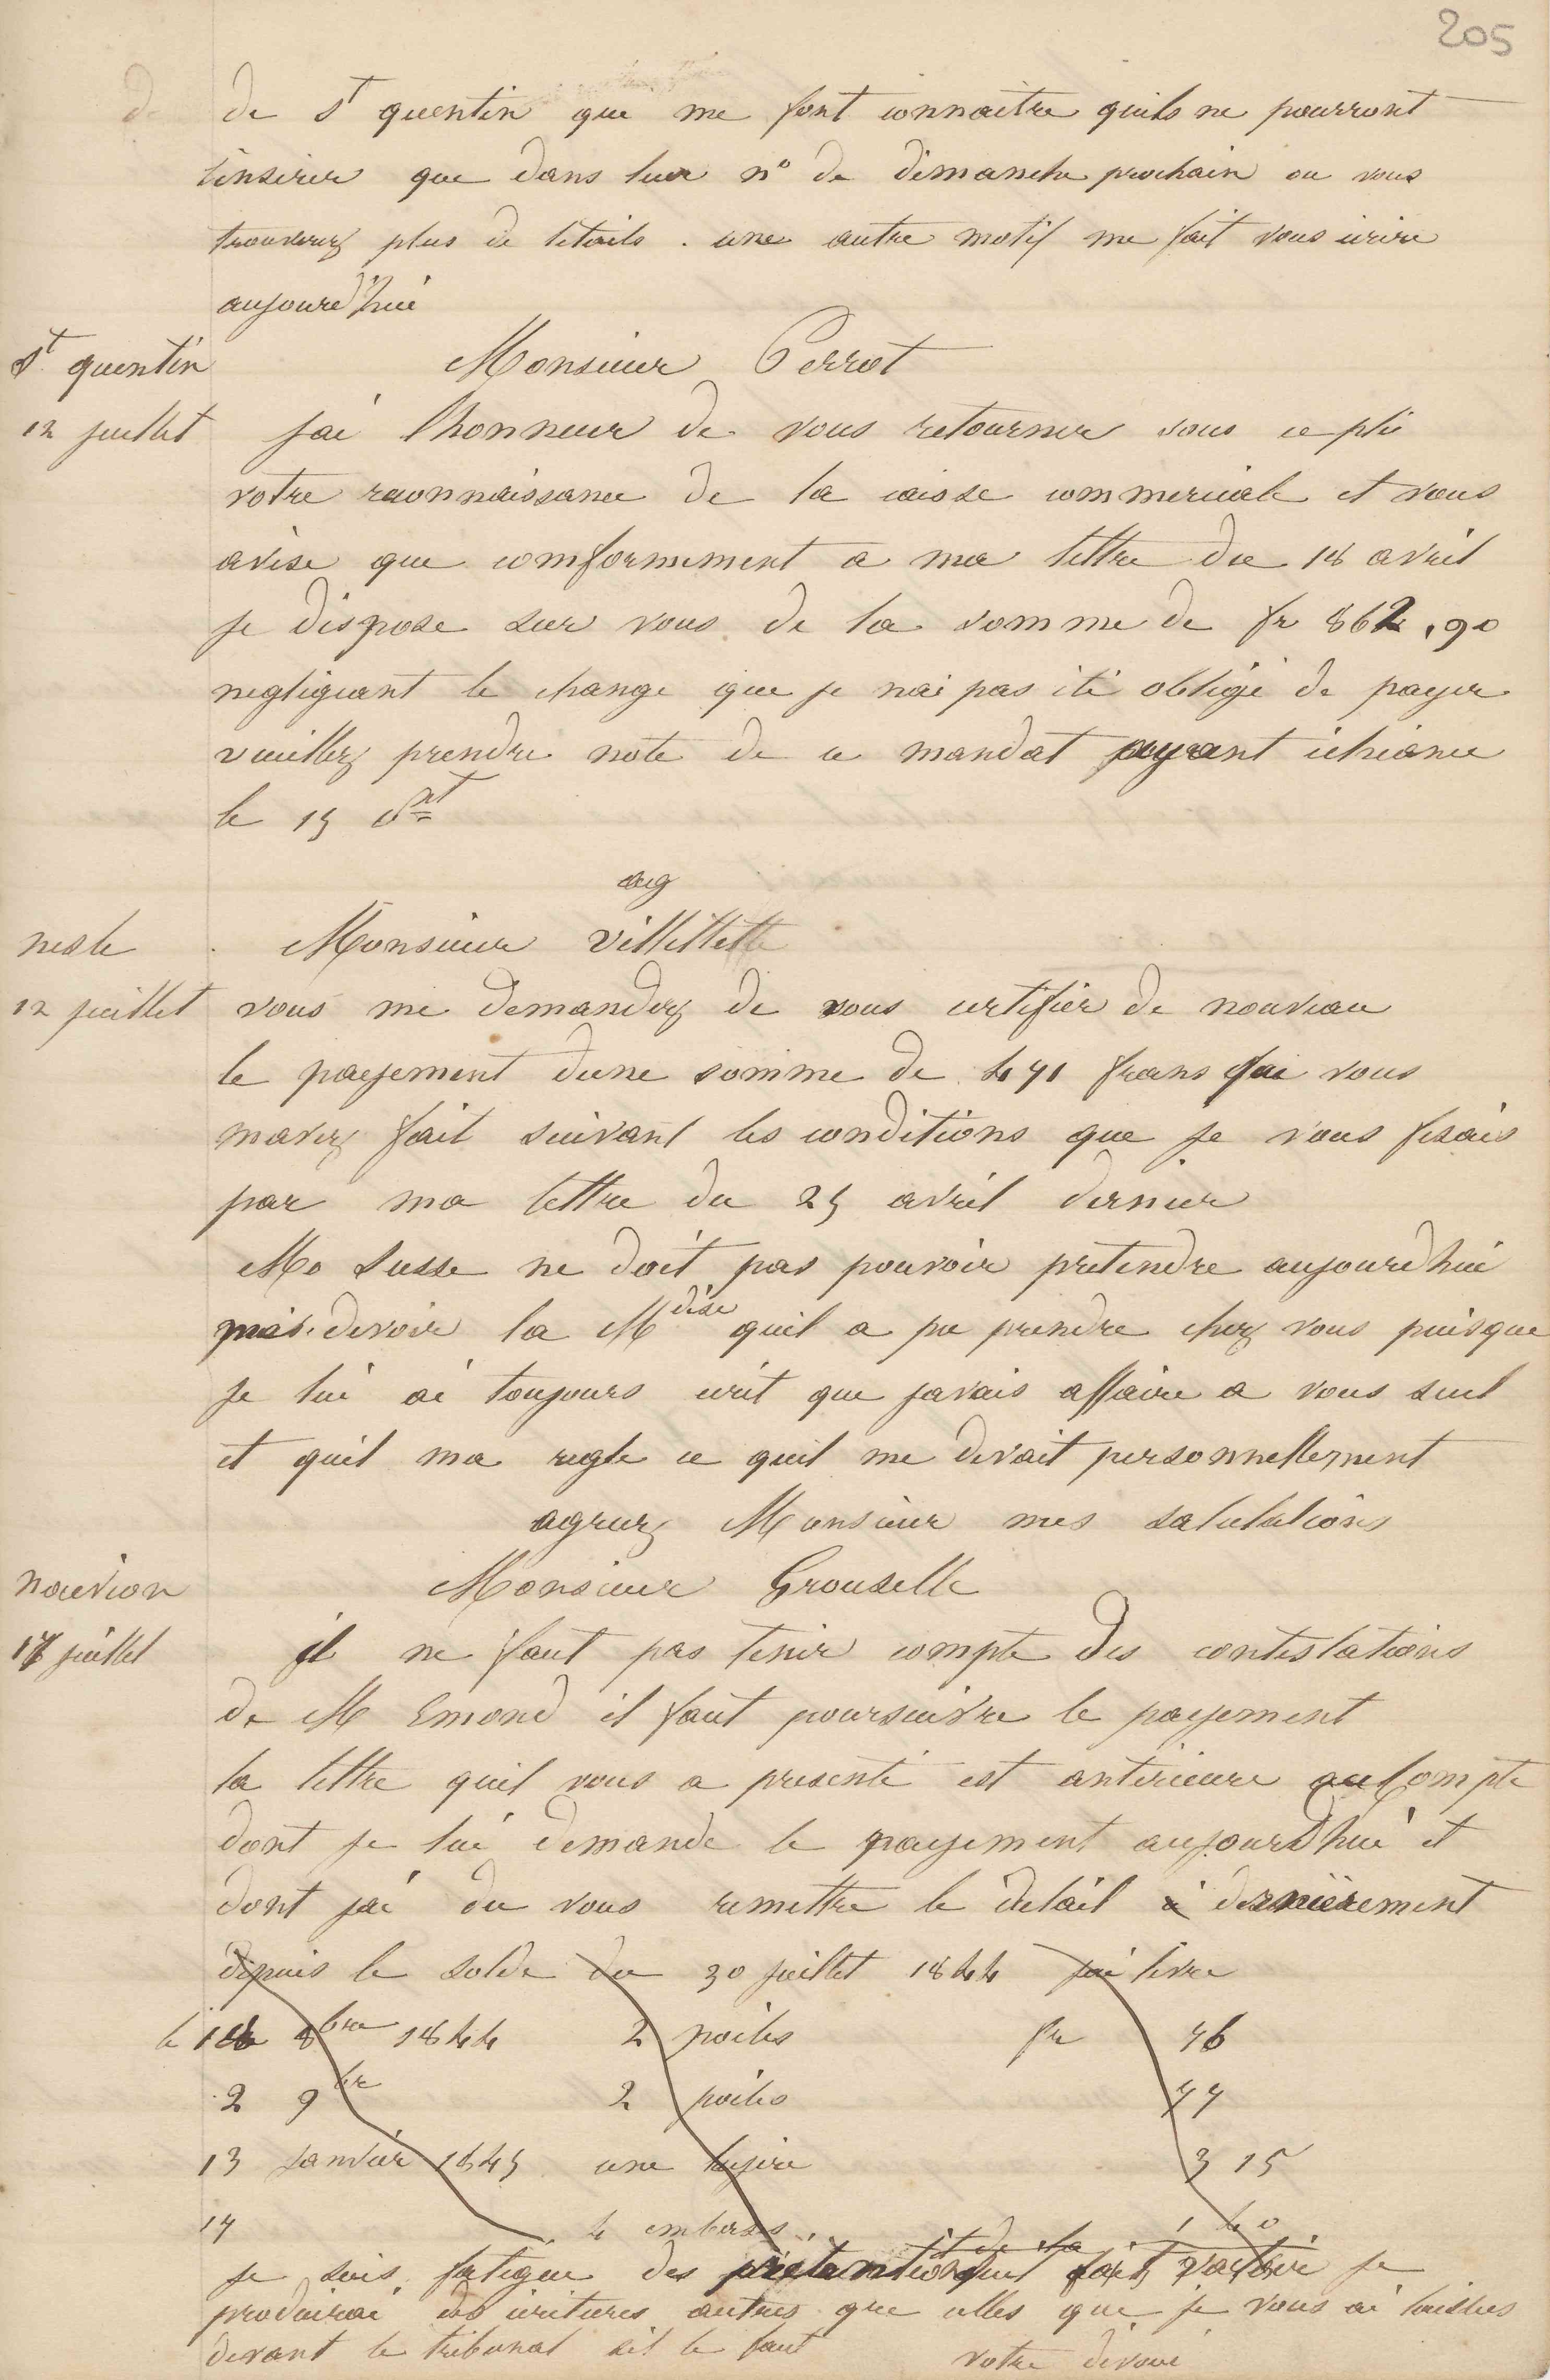 205
de St quentin que me font connaitre quils ne pourront
linserer que dans leur n° de dimanche prochain ou vous
trouverez plus de détails . une autre motif me fait vous ecrire
aujourd'hui
St quentin Monsieur Perrot
12 juillet jai lhonneur de vous retourner sous ce pli
votre reconnaissance de la caisse commerciale et vous
avise que comformement a ma lettre du 18 avril
je dispose sur vous de la somme de fr 862,90
negligeant le change que je nai pas été obligé de payer
veuillez prendre note de ce mandat payant écheance
le 15 ct
ag
nesle Monsieur Villettte
12 juillet vous me demandez de vous certifier de nouveau
le payement dune somme de 471 frans que vous
mavez fait suivant les conditions que je vous fesais
par ma lettre du 25 avril dernier
Mo Susse ne doit pas pouvoir pretendre aujourdhui
devoir la Mdise quil a pu prendre chez vous puisque
je lui ai toujours ecrit que javais affaire a vous seul
et quil ma regle ce quil me devait personnellement
agreez Monsieur mes salutations
nouvion Monsieur Grouselle
17 juillet il ne faut pas tenir compte des contestations
de M Emond il faut poursuivre le payement
la lettre quil vous a presenté est antérieure au Compte
dont je lui demande le payement aujourdhui et
dont jai du vous remettre le détail dernièrement
depuis le solde du 30 juillet 1844 jai livre
le 8bre 1844 2 poiles fr 76
2 9bre 2 poiles 77
13 janvier 1845 une 3 15
14 4 embases 1 40
je suis fatigue des pretentions je
produirai des ecritures autres que celles que je vous ai laissées
devant le tribunal sil le faut votre dévoué